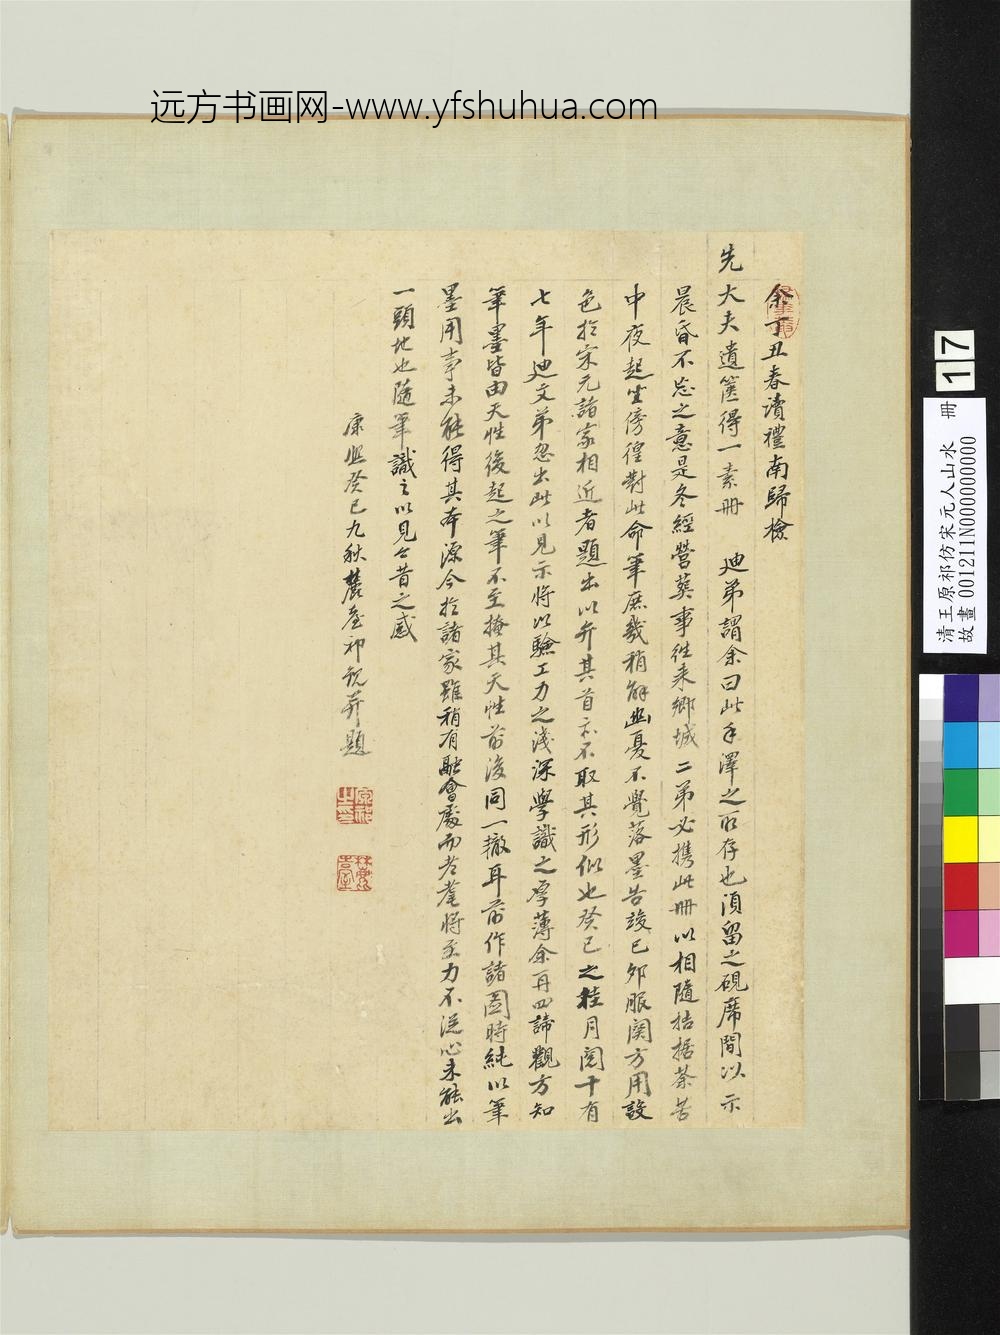 远方书画网-www.yfshuhua.com
余丁丑春讀禮南歸檢
先大夫遺篋得一素冊　迪弟謂余曰此手澤之所存也須留之硯席間以示
晨昏不忘之意是冬經營葬事往來鄉城二弟必攜此冊以相隨拮据荼苦
中夜起坐傍徨對此命筆庶幾稍解幽憂不覺落墨告竣己卯服闋方用設
色於宋元諸家相近者題出以弁其首衣不取其形似也癸巳之桂月閱十有
七年迪文弟忽出此以見示將以驗工力之淺深學識之厚薄余再四諦觀方知
筆墨皆由天性後起之筆不至掩其天性前後同一轍耳前作諸圖時純以筆
墨用事未能得其本源今於諸家雖稍有融會處而老耄將至力不從心未能出
一頭地也隨筆識之以見今昔之感
康熙癸巳九秋麓臺祁觀并題
清王原祁仿宋元人山水　冊
故畫001211N000000000
17